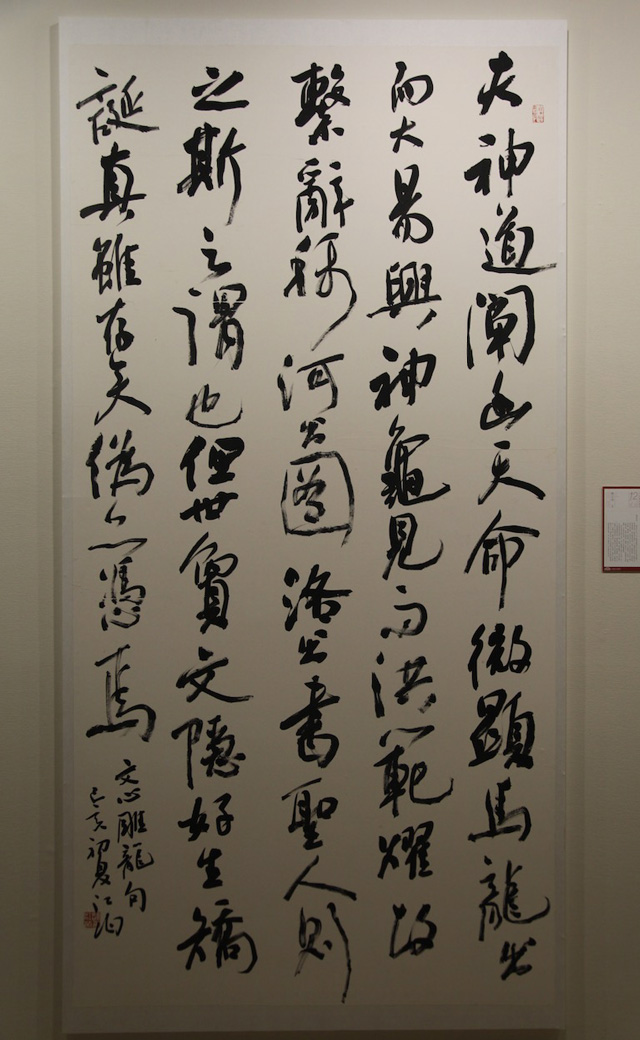 夫神道闡幽天命微顯馬龍出
而大易興神龜見而洪範耀故
繫辭稱河出圖洛出書聖人則
之斯之謂也但世夐文隱好生矯
誕真雖存矣偽亦憑焉
文心雕龍句
己亥初夏江